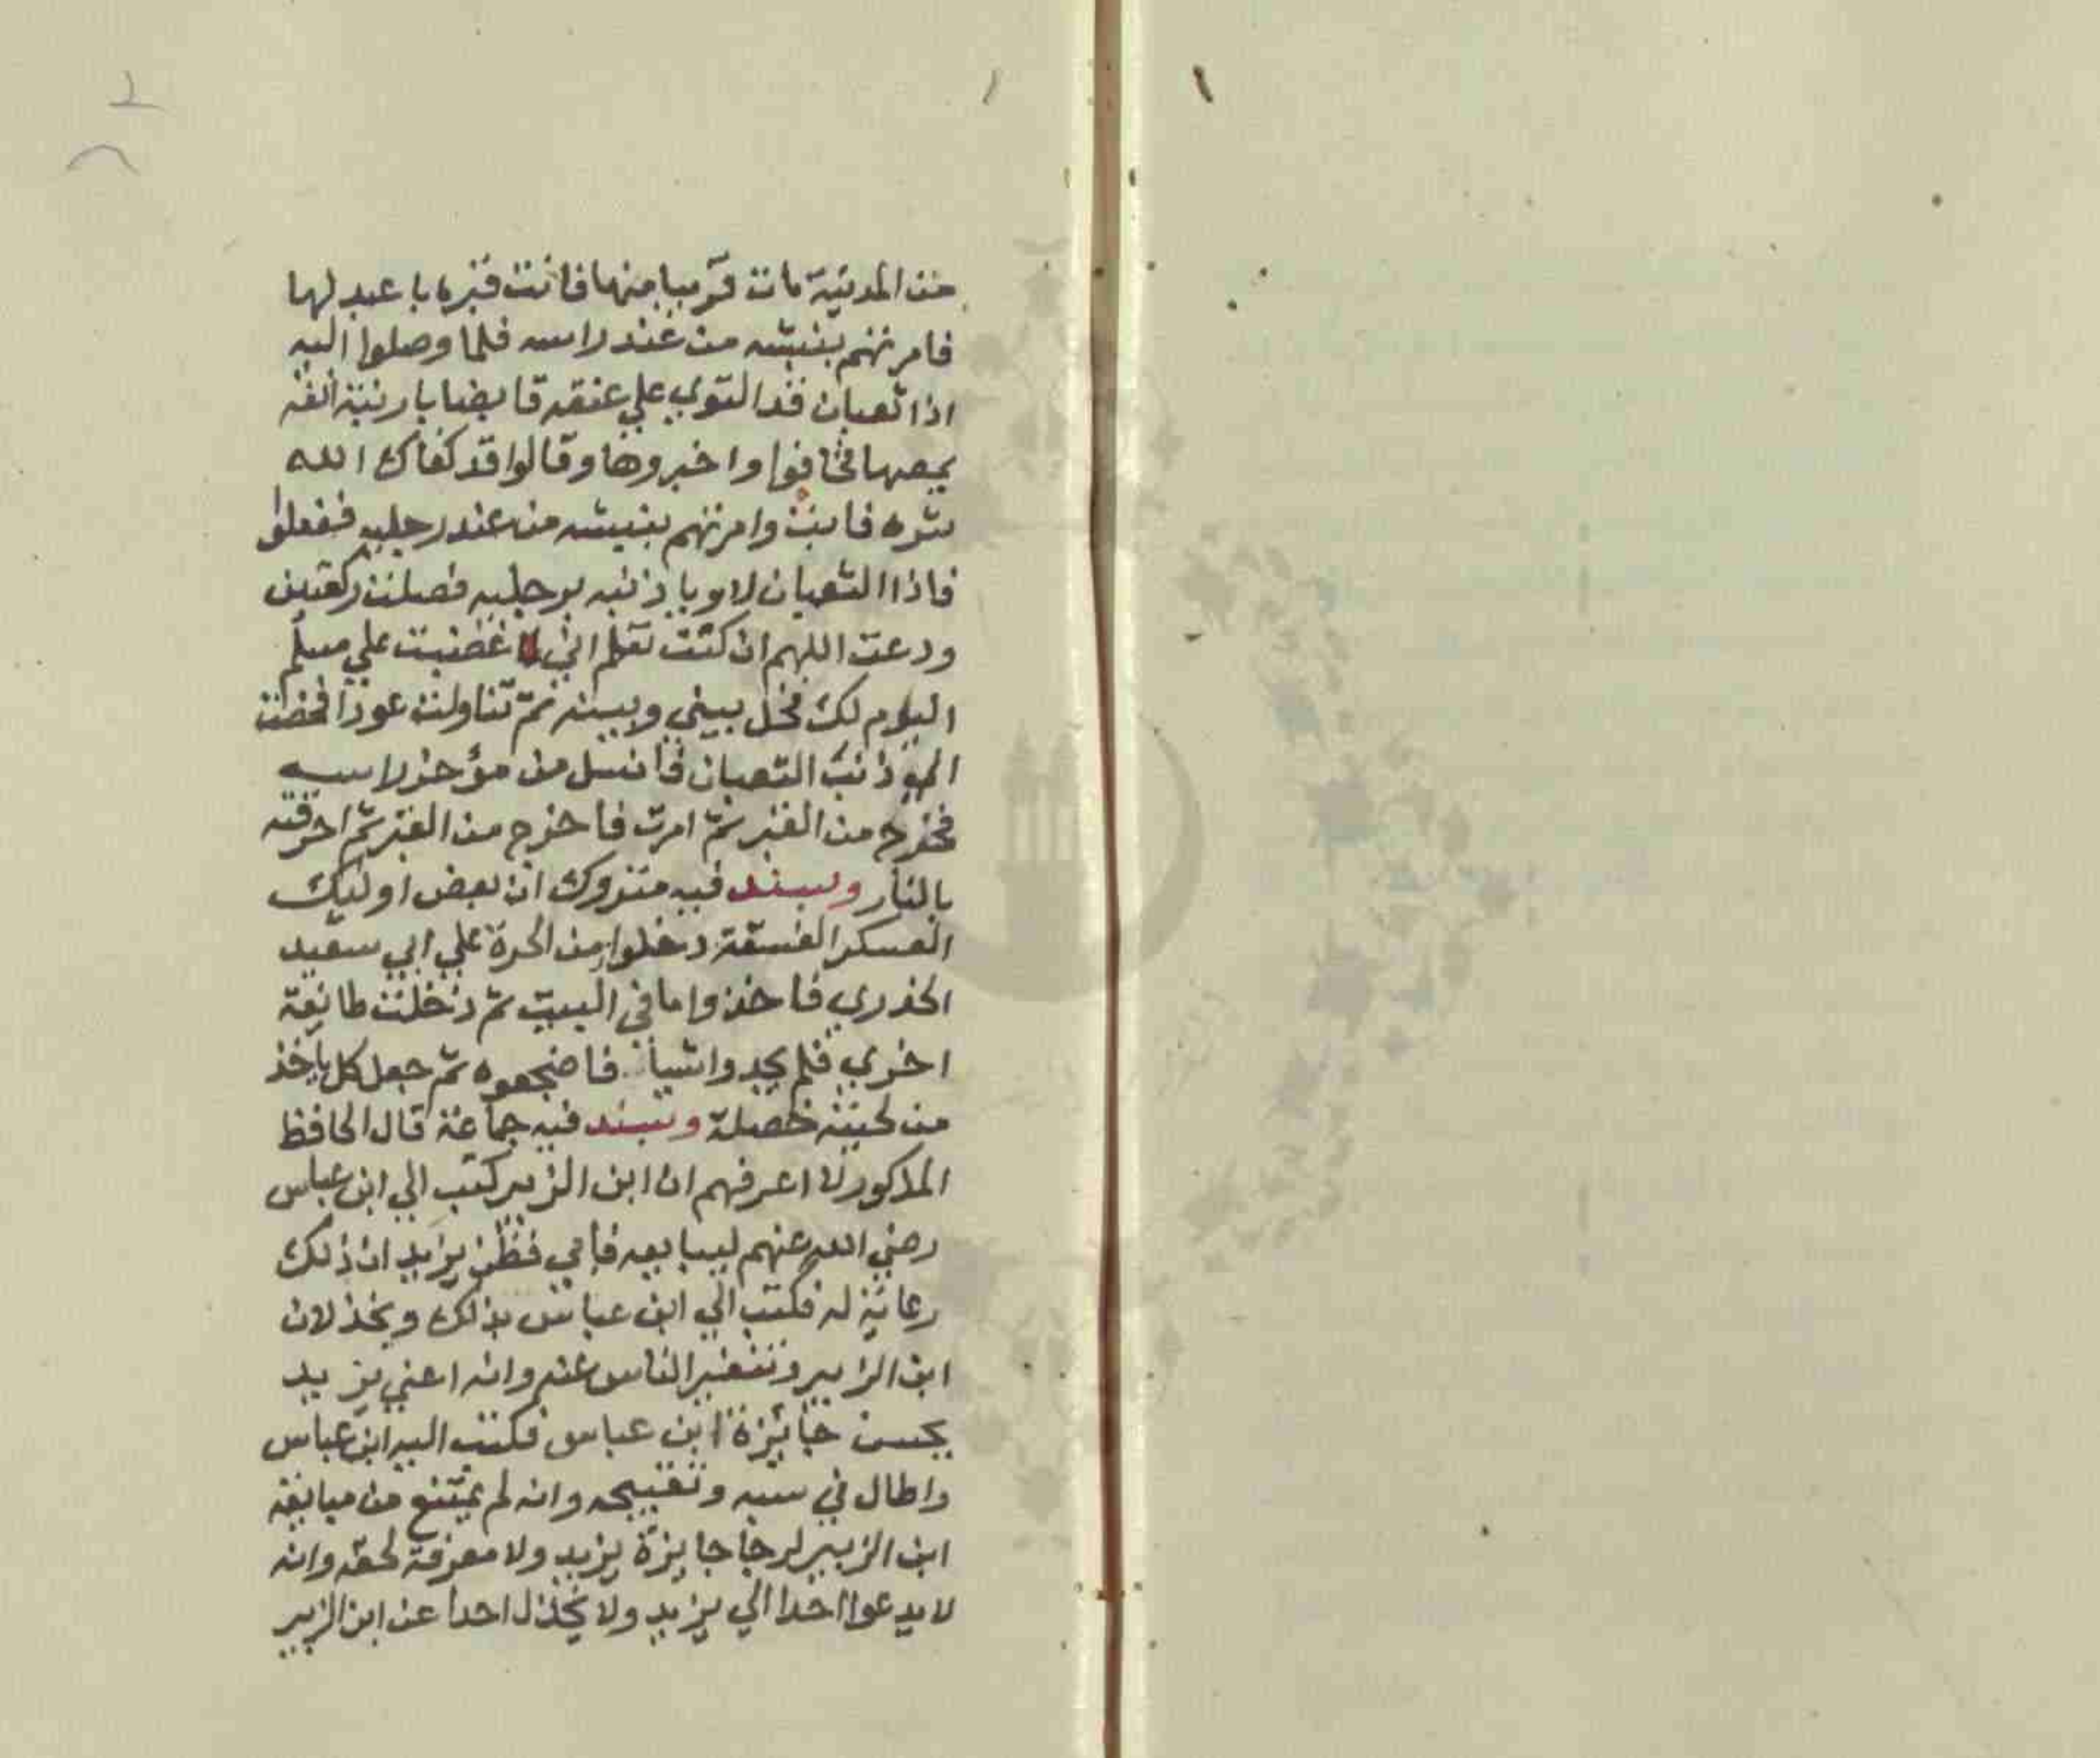 من المدينة مات قريبا منها فاتت قبره باعبد لها
فامرتهم بنبشه من عند راسه فلما وصلوا اليه
اذا ثعبان قد التوي علي عنقه قابضا بارنبة انفه
يمصها فخافوا واخبروها وقالوا قد كفاك الله
شره فابت وامرتهم بنبشه من عند رجليه ففعلوا
فاذا الثعبان لاويا ذنبه برجليه فصلت ركعتين
ودعت اللهم ان كنت تعلم اني غضبت علي مسلم
اليوم لك فخل بيني وبينه ثم تناولت عودا فمضت
الي ذنب الثعبان فانسل من مؤخر راسه
فخرج من القبر ثم امرت فاخرج من القبر ثم احرقته
بالنار وبسند فيه متروك ان بعض اوليك
العسكر الفسقة دخلوا من الحرة علي ابي سعيد
الخدري فاخذوا ما في البيت ثم دخلت طايفة
اخري فلم يجدوا شيأ فاضجعوه ثم جعل كل ياخذ
من لحيته خصلة وبسند فيه جماعة قال الحافظ
المذكور لا اعرفهم ان ابن الزبير كتب الي ابن عباس
رضي الله عنهم ليبايعه فابي فظن يزيد ان ذلك
رعاية له فكتب الي ابن عباس بذلك وبخذلان
ابن الزبير وتنفير الناس عنه وانه اعني يزيد
يحسن جايزة ابن عباس فكتب اليه ابن عباس
واطال في سبه وتقبيحه وانه لم يمتنع من مبايعة
ابن الزبير لرجا جايزة يزيد ولا معرفة لحقه وانه
لا يدعوا احدا الي يزيد ولا يخذل احدا عن ابن الزبير